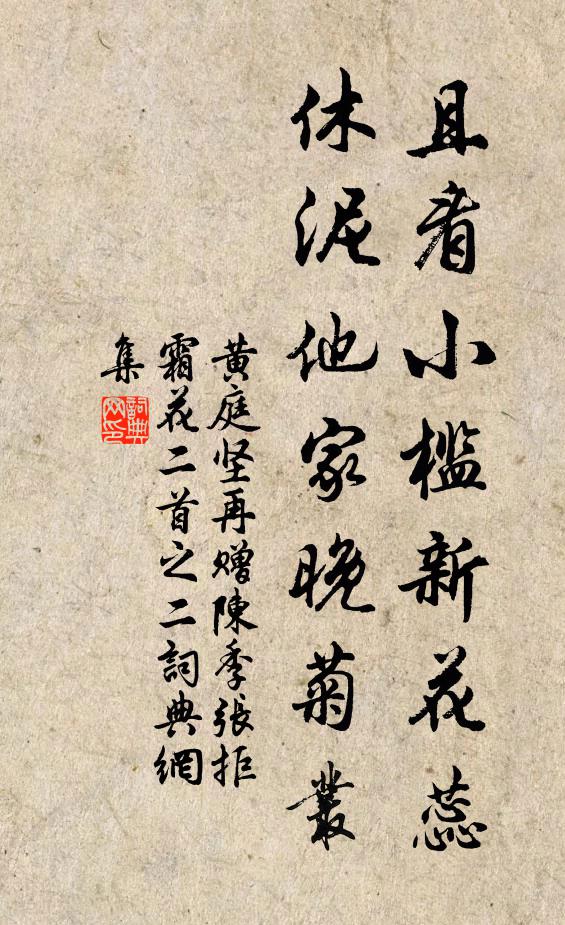 且看小檻新花蕊
休泥他家晚菊叢
黄庭坚再赠陳季張拒
霜花二首之二詞典網
集
詞典
网印